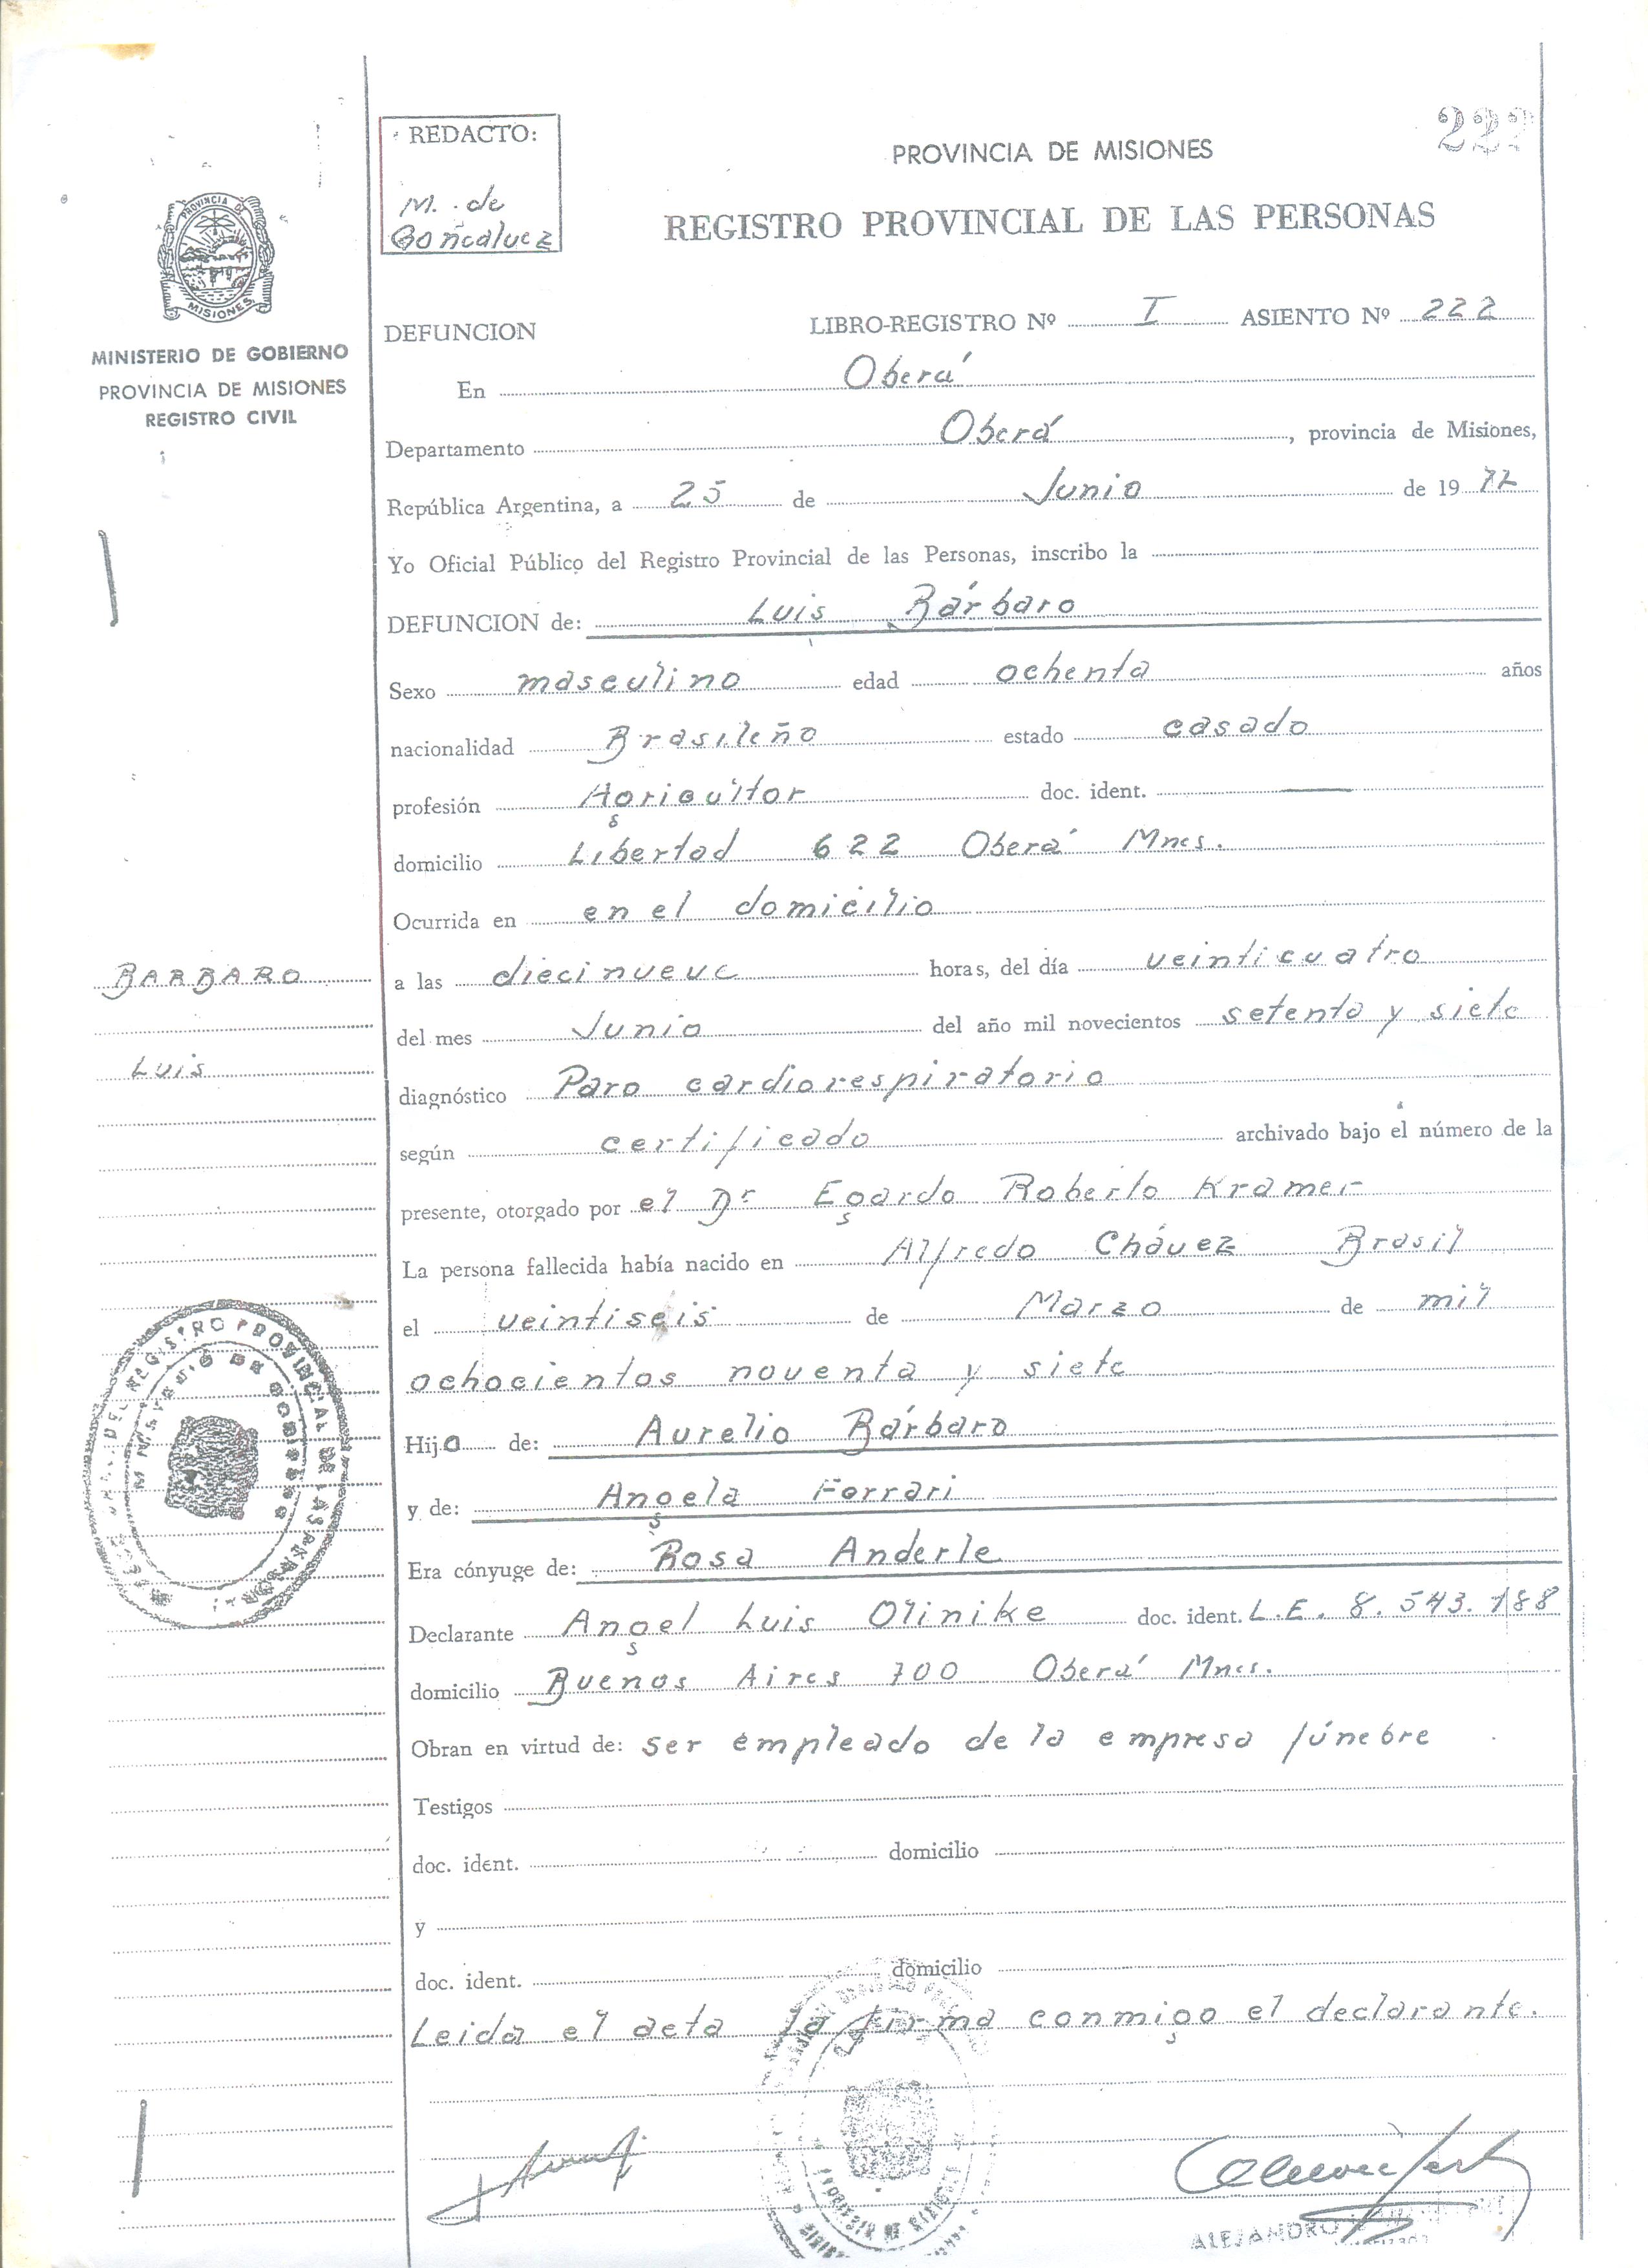 222
REDACTO:
M. de
Goñcalvez
PROVINCIA DE MISIONES
REGISTRO PROVINCIAL DE LAS PERSONAS
PROVINCIA DE
MISIONES
MINISTERIO DE GOBIERNO
PROVINCIA DE MISIONES
REGISTRO CIVIL
DEFUNCION LIBRO-REGISTRO Nº I ASIENTO Nº 222
En Oberá
Departamento Oberá, provincia de Misiones,
República Argentina, a 25 de Junio de 1977
Yo Oficial Público del Registro Provincial de las Personas, inscribo la
DEFUNCION de: Luis Bárbaro
Sexo masculino edad ochenta años
nacionalidad Brasileño estado casado
profesión Agricultor doc. ident. —
domicilio Libertad 622 Oberá Mnes.
Ocurrida en en el domicilio
BARBARO
a las diecinueve horas, del día veinticuatro
del mes Junio del año mil novecientos setenta y siete
Luis
diagnóstico Paro cardiorespiratorio
según certificado archivado bajo el número de la
presente, otorgado por el Dr Egardo Roberto Kramer
La persona fallecida había nacido en Alfredo Cháuez Brasil
el veintiseis de Marzo de mil
ochocientos noventa y siete
Hijo de: Aurelio Bárbaro
y de: Angela Ferrari
Era cónyuge de: Rosa Anderle
Declarante Angel Luis Olinike doc. ident. L.E. 8.543.188
domicilio Buenos Aires 700 Oberá Mnes.
Obran en virtud de: ser empleado de la empresa fúnebre
Testigos
doc. ident. domicilio
y
doc. ident. domicilio
Leida el acta la firma conmigo el declarante.
ALEJANDRO